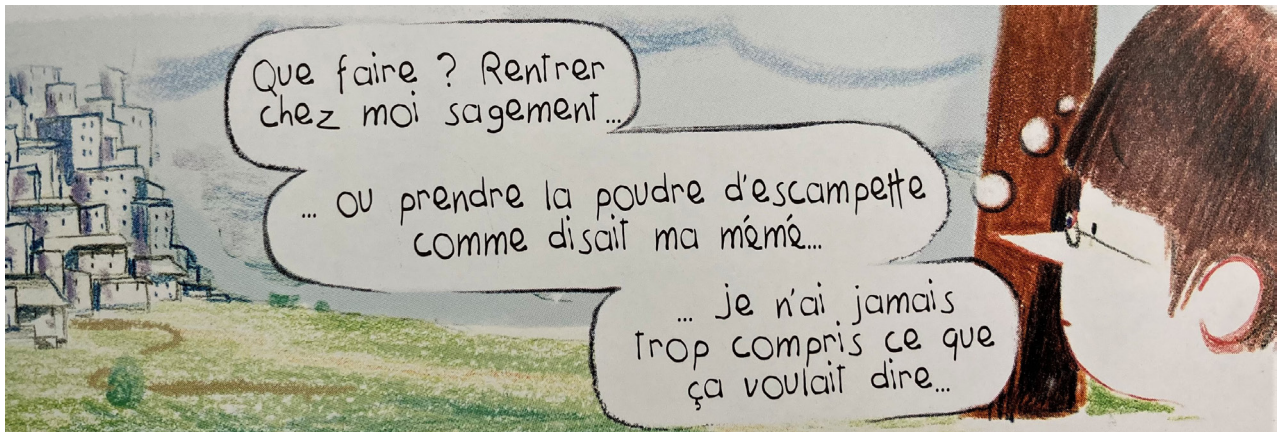 Que faire ? Rentrer
chez moi sagement...
... ou prendre la poudre d'escampette
comme disait ma mémé...
... je n'ai jamais
trop compris ce que
ça voulait dire...